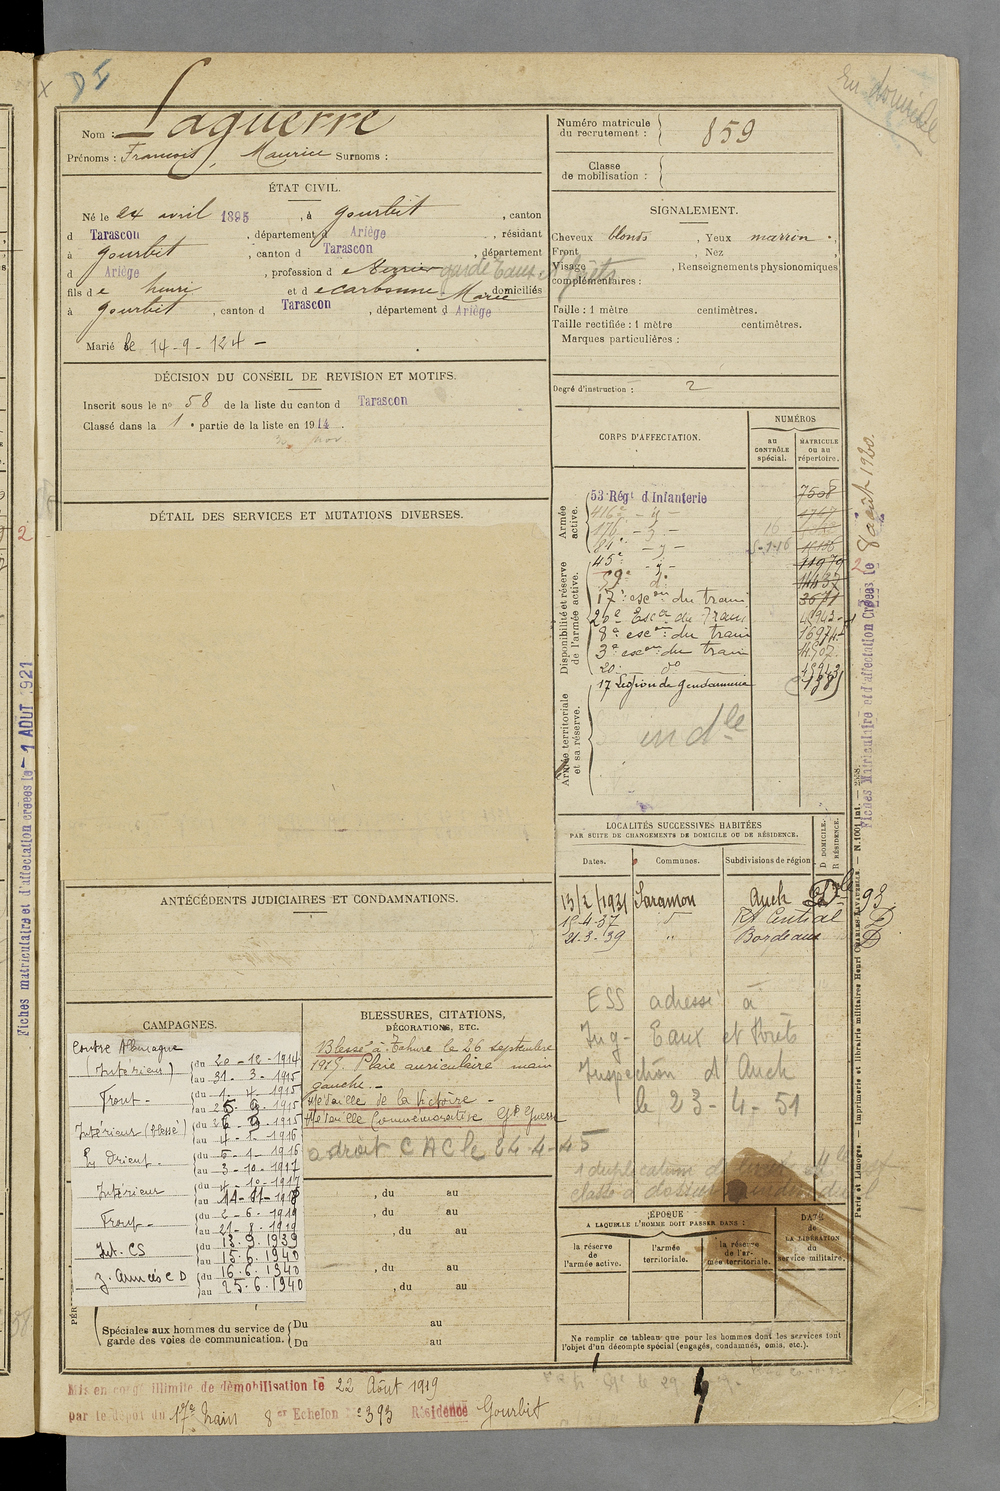 X D I
en domicile
Nom : Laguerre
Prénoms : François, Maurice Surnoms :
Numéro matricule du recrutement : 859
Classe de mobilisation :
ÉTAT CIVIL.
Né le 24 avril 1895, à Gourbit, canton
d Tarascon, département d Ariège, résidant
à Gourbit, canton d Tarascon, département
d Ariège, profession d garde Eaux et forêts
fils d e henri et d e carbonne Marie domiciliés
à Gourbit, canton d Tarascon, département d Ariège
Marié le 14-9-124 -
SIGNALEMENT.
Cheveux blonds, Yeux marron.
Front , Nez ,
Visage , Renseignements physionomiques
complémentaires :
Taille : 1 mètre centimètres.
Taille rectifiée : 1 mètre centimètres.
Marques particulières :
Degré d'instruction : 2
DÉCISION DU CONSEIL DE REVISION ET MOTIFS.
Inscrit sous le nº 58 de la liste du canton d Tarascon
Classé dans la 1e partie de la liste en 1914.
DÉTAIL DES SERVICES ET MUTATIONS DIVERSES.
CORPS D'AFFECTATION.
NUMÉROS
au CONTRÔLE spécial.
MATRICULE ou au répertoire.
Armée active.
53 Régt d Infanterie 7508
416e - y -
176e - y - 16
84e - y - 5-1-16
Disponibilité et réserve de l'armée active.
45e - y - 11979
59e do 14437
17e escon du train 3671
20e Escon du Train
8e escon du train 16974
3e escon du train
20e do
17 Légion de gendarmerie
Armée territoriale et sa réserve.
ind le
LOCALITÉS SUCCESSIVES HABITÉES
PAR SUITE DE CHANGEMENTS DE DOMICILE OU DE RÉSIDENCE.
Dates. Communes. Subdivisions de région
D DOMICILE. R RÉSIDENCE.
13/2/1921 Saramon Auch
15-4-37 " RA Central D
21-3-39 " Bordeaux D
ESS adressé à
Ing- Eaux et Forêts
Inspection d'Auch
le 23-4-51
ANTÉCÉDENTS JUDICIAIRES ET CONDAMNATIONS.
CAMPAGNES.
Contre Allemagne
(Intérieur) du 20-12-1914
au 31-3-1915
Front - du 1-4-1915
au 25-9-1915
Intérieur (blessé) du 26-9-1915
au 4-1-1916
En Orient - du 5-1-1916
au 3-10-1917
Intérieur du 4-10-1917
au 11-11-1918
Front - du 2-6-1919
au 21-8-1919
Int. CS du 13.9.1939
au 15.6.1940
Z. Armées CD du 16.6.1940
au 25.6.1940
BLESSURES, CITATIONS, DÉCORATIONS, ETC.
Blessé à Tahure le 26 septembre
1915. Plaie auriculaire main
gauche.-
Médaille de la Victoire -
Médaille Commémorative Gde Guerre
a droit CAC le 24-4-45
, du au
, du au
, du au
, du au
, du au
Spéciales aux hommes du service de garde des voies de communication.
Du au
Du au
ÉPOQUE
A LAQUELLE L'HOMME DOIT PASSER DANS :
la réserve de l'armée active.
l'armée territoriale.
la réserve de l'armée territoriale.
DATE de LA LIBÉRATION du service militaire.
Ne remplir ce tableau que pour les hommes dont les services font
l'objet d'un décompte spécial (engagés, condamnés, omis, etc.).
Mis en congé illimité de démobilisation le 22 Août 1919
par le dépôt du 17e Train 8er Echelon No 393 Résidence Gourbit
Fiches matriculaire et d'affectation créées le - 1 AOUT 1921
Fiches Matriculaire et d'affectation Créées le 8 août 1920.
Paris et Limoges. — Imprimerie et librairie militaires Henri CHARLES-LAVAUZELLE. — N. 1001 int.